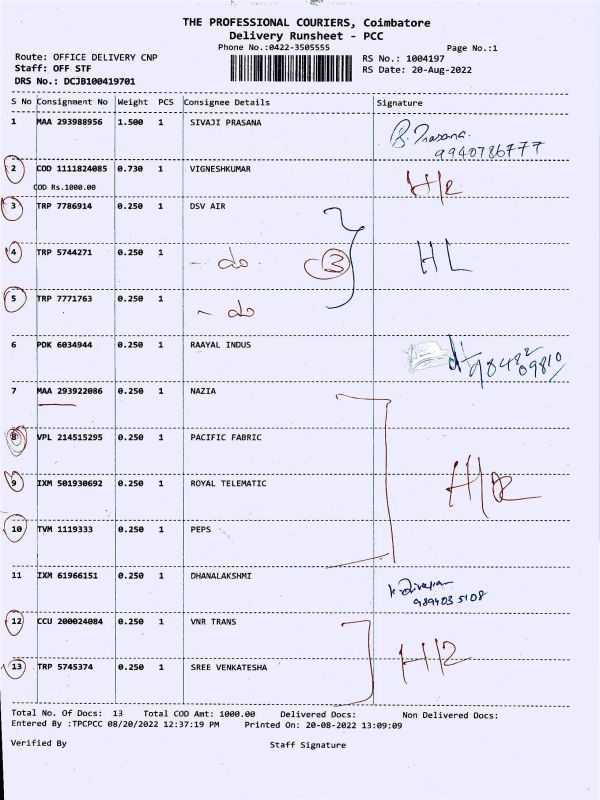 THE PROFESSIONAL COURIERS, Coimbatore
Delivery Runsheet - PCC
Phone No.:0422-3505555
Page No.:1
Route: OFFICE DELIVERY CNP
RS No.: 1004197
Staff: OFF STF
RS Date: 20-Aug-2022
DRS No.: DCJB100419701
S No Consignment No Weight PCS Consignee Details Signature
1 MAA 293988956 1.500 1 SIVAJI PRASANA
B. Prasana
9940786777
2 COD 1111824085 0.730 1 VIGNESHKUMAR
COD Rs.1000.00
3 TRP 7786914 0.250 1 DSV AIR
4 TRP 5744271 0.250 1 - do. 3 HL
5 TRP 7771763 0.250 1 - do
6 PDK 6034944 0.250 1 RAAYAL INDUS
7 MAA 293922086 0.250 1 NAZIA
8 VPL 214515295 0.250 1 PACIFIC FABRIC
9 IXM 501930692 0.250 1 ROYAL TELEMATIC
10 TVM 1119333 0.250 1 PEPS
11 IXM 61966151 0.250 1 DHANALAKSHMI
9894035108
12 CCU 200024084 0.250 1 VNR TRANS
13 TRP 5745374 0.250 1 SREE VENKATESHA
Total No. Of Docs: 13 Total COD Amt: 1000.00 Delivered Docs: Non Delivered Docs:
Entered By :TPCPCC 08/20/2022 12:37:19 PM Printed On: 20-08-2022 13:09:09
Verified By Staff Signature